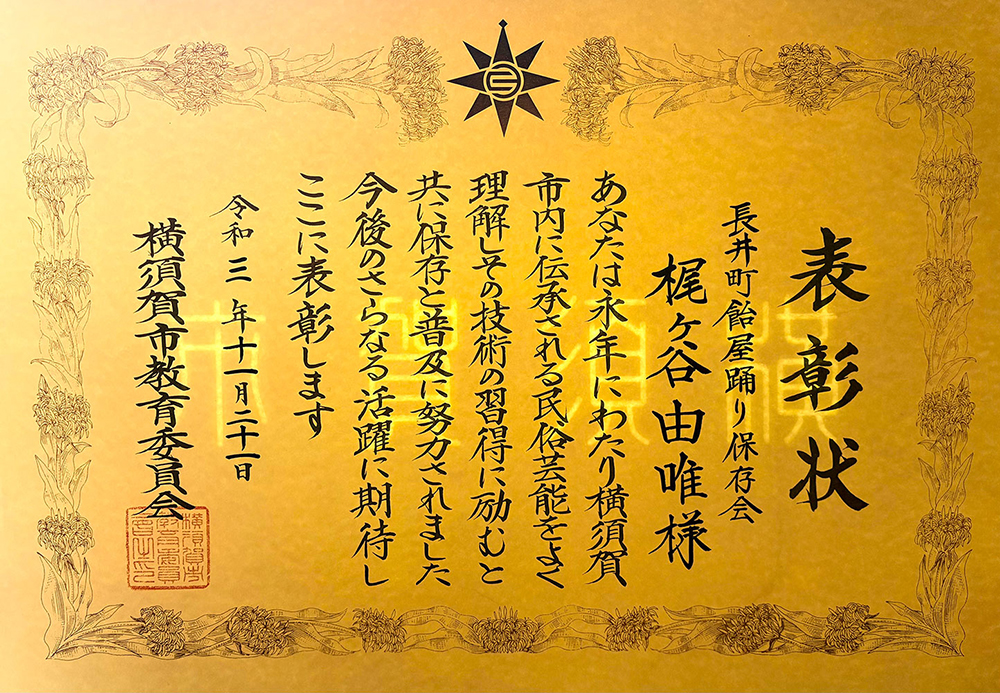 表彰状
長井町飴屋踊り保存会
梶ヶ谷由唯様
あなたは永年にわたり横須賀
市内に伝承される民俗芸能をよく
理解しその技術の習得に励むと
共に保存と普及に努力されました
今後のさらなる活躍に期待し
ここに表彰します
令和三年十一月二十一日
横須賀市教育委員会
横須賀市